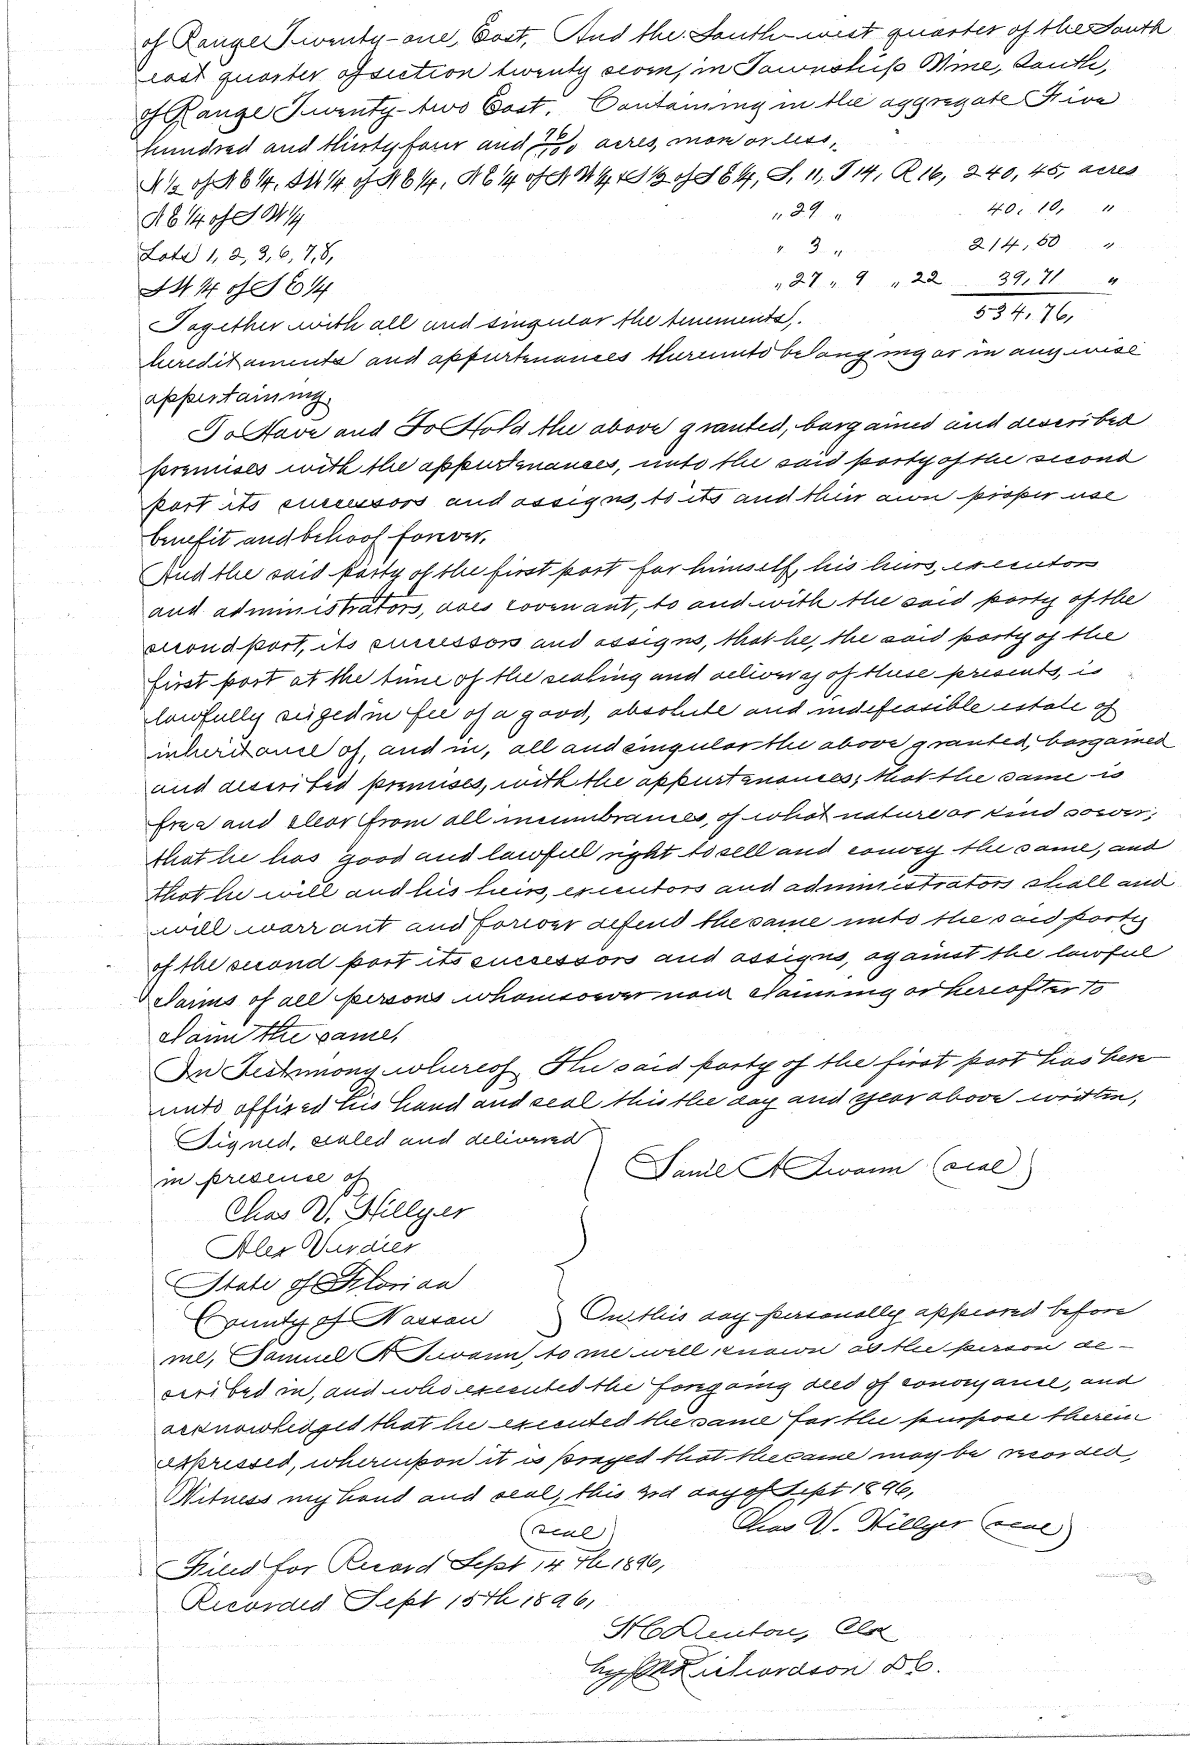 of Range Twenty-one, East, And the South-west quarter of the South
east quarter of section twenty seven, in Township Nine, South,
of Range Twenty-two East. Containing in the aggregate Five
hundred and thirty four and 76/100 acres, more or less,
N ½ of N E ¼, S W ¼ of N E ¼, N E ¼ of N W ¼ & S ½ of S E ¼, S, 11, T 14, R 16, 240, 45, acres
N E ¼ of S W ¼ " 29 " 40, 10, "
Lots 1, 2, 3, 6, 7, 8, " 3 " 214, 50 "
S W ¼ of S E ¼ " 27 " 9 " 22 39, 71 "
Together with all and singular the tenements, 534, 76,
hereditaments and appurtenances thereunto belonging or in any wise
appertaining,
To Have and To Hold the above granted, bargained and described
premises with the appurtenances, unto the said party of the second
part its successors and assigns, to its and their own proper use
benefit and behoof forever,
And the said party of the first part for himself, his heirs, executors
and administrators, does covenant, to and with the said party of the
second part, its successors and assigns, that he, the said party of the
first part at the time of the sealing and delivery of these presents, is
lawfully seized in fee of a good, absolute and indefeasible estate of
inheritance of, and in, all and singular the above granted, bargained
and described premises, with the appurtenances; that the same is
free and clear from all incumbrances, of what nature or kind soever;
that he has good and lawful right to sell and convey the same, and
that he will and his heirs, executors and administrators shall and
will warrant and forever defend the same unto the said party
of the second part its successors and assigns, against the lawful
claims of all persons whomsoever now claiming or hereafter to
claim the same,
In Testimony whereof, The said party of the first part has here
unto affixed his hand and seal this the day and year above written,
Signed, sealed and delivered
in presence of Saml A Swann (seal)
Chas V. Hillyer
Alex Verdier
State of Florida
County of Nassau } On this day personally appeared before
me, Samuel A Swann, to me well known as the person de-
scribed in, and who executed the foregoing deed of conveyance, and
acknowledged that he executed the same for the purpose therein
expressed, whereupon it is prayed that the same may be recorded,
Witness my hand and seal, this 3rd day of Sept 1896,
(seal) Chas V. Hillyer (seal)
Filed for Record Sept 14th 1896,
Recorded Sept 15th 1896,
H C Denton, Clk
by Richardson D C.